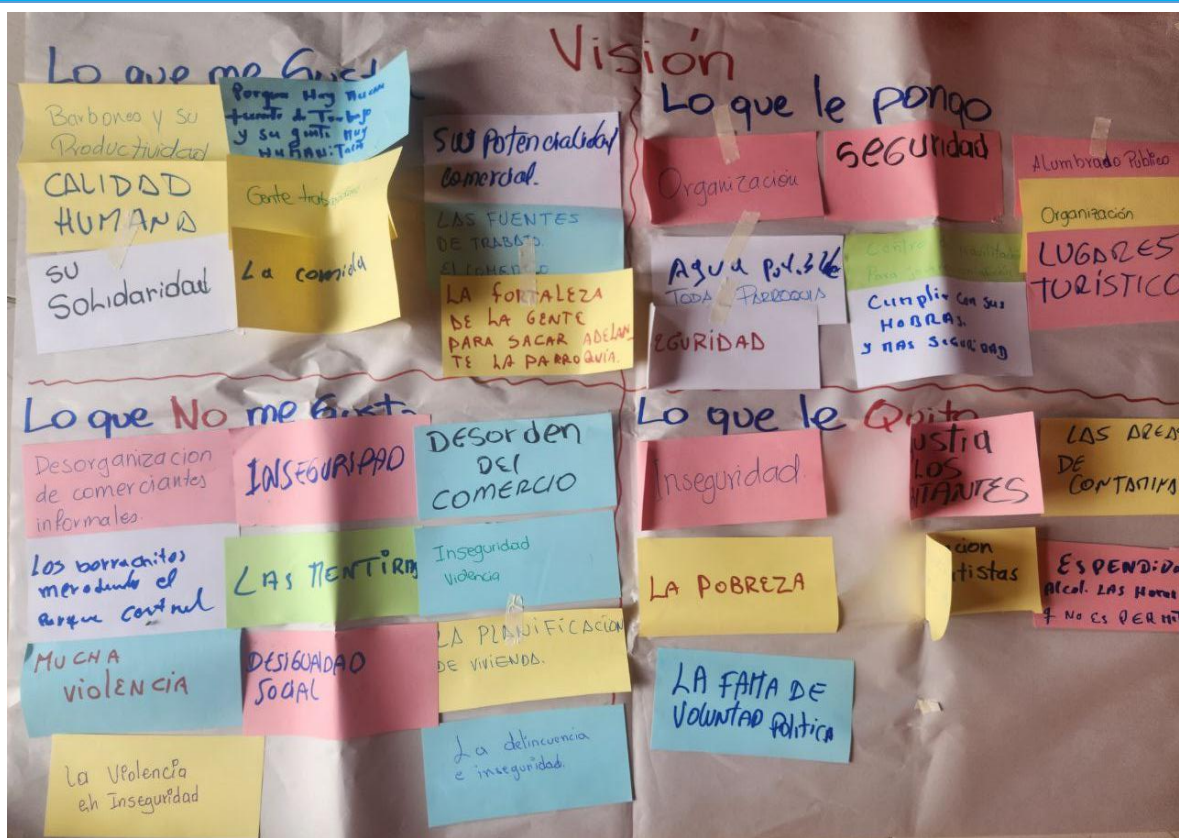 Visión
Lo que me Gust
Barbones y su
Productividad
Porque Hay
fuente de Trabajo
y su gente muy
CALIDAD
HUMANA
Gente
SU
Solidaridad
La comida
SUS Potencialidad
Comercial.
LAS FUENTES
DE TRABAJO.
EL COMERCIO
LA FORTALEZA
DE LA GENTE
PARA SACAR ADELAN-
TE LA PARROQUIA.
Lo que le pongo
Organización
SEGUridad
Alumbrado Público
Organización
LUGARES
TURÍSTICO
Agua
TODA PARROQUIA
EGURIDAD
Para
Cumplir con sus
HOBRAS.
y MAS SEGURIDAD
Lo que No me Gusta
Desorganizacion
de comerciantes
informales.
INSEGURIDAD
DESorden
DEl
COMERCIO
Los borrachitos
merodiando el
Parque central
LAS MENTIRAS
Inseguridad
Violencia
MUCHA
VIOLENCIA
DESIGUALDAD
SOCIAL
LA PLANIFICACION
DE VIVIENDA.
La Violencia
eh Inseguridad
La delincuencia
e inseguridad.
Lo que le Quito
Inseguridad.
USTIA
LOS
ITANTES
LAS AREAS
DE
CONTAMINA
LA POBREZA
cion
tistas
ESPENDIDO
Alcol. LAS Horas
NO ES PERMIT
LA FALTA DE
VOLUNTAD POlitica